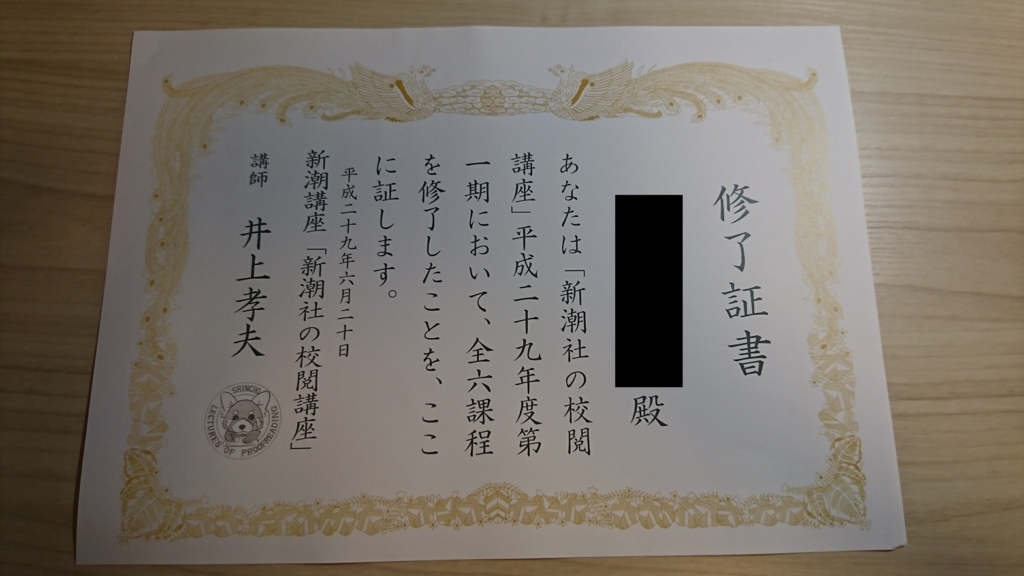 修了証書
殿
あなたは「新潮社の校閲
講座」平成二十九年度第
一期において、全六課程
を修了したことを、ここ
に証します。
平成二十九年六月二十日
新潮講座「新潮社の校閲講座」
講師 井上孝夫
SHINCHO LECTURES OF PROOFREADING